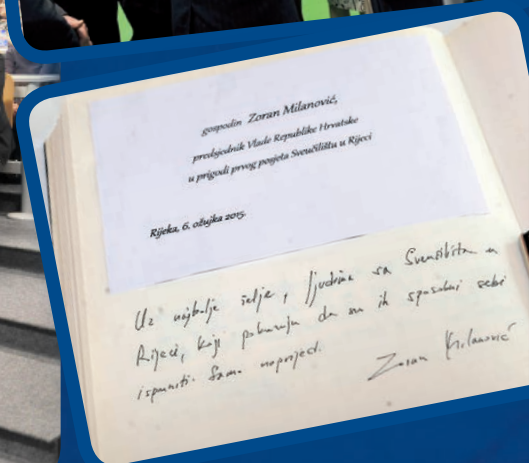 gospodin Zoran Milanović,
predsjednik Vlade Republike Hrvatske
u prigodi prvog posjeta Sveučilištu u Rijeci
Rijeka, 6. ožujka 2015.
Uz najbolje želje, ljudima sa Sveučilišta u
Rijeci, koji pokazuju da su ih sposobni sebi
ispuniti. Samo naprijed.
Zoran Milanović